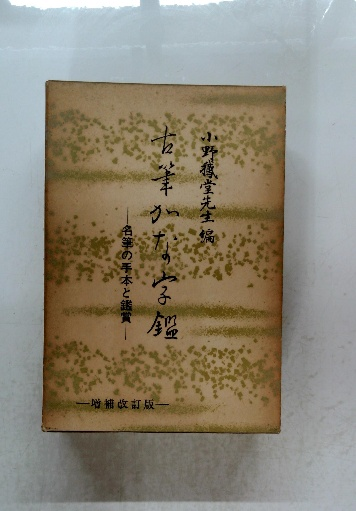 小野鵞堂先生編
古筆かな字鑑
―名筆の手本と鑑賞―
―増補改訂版―